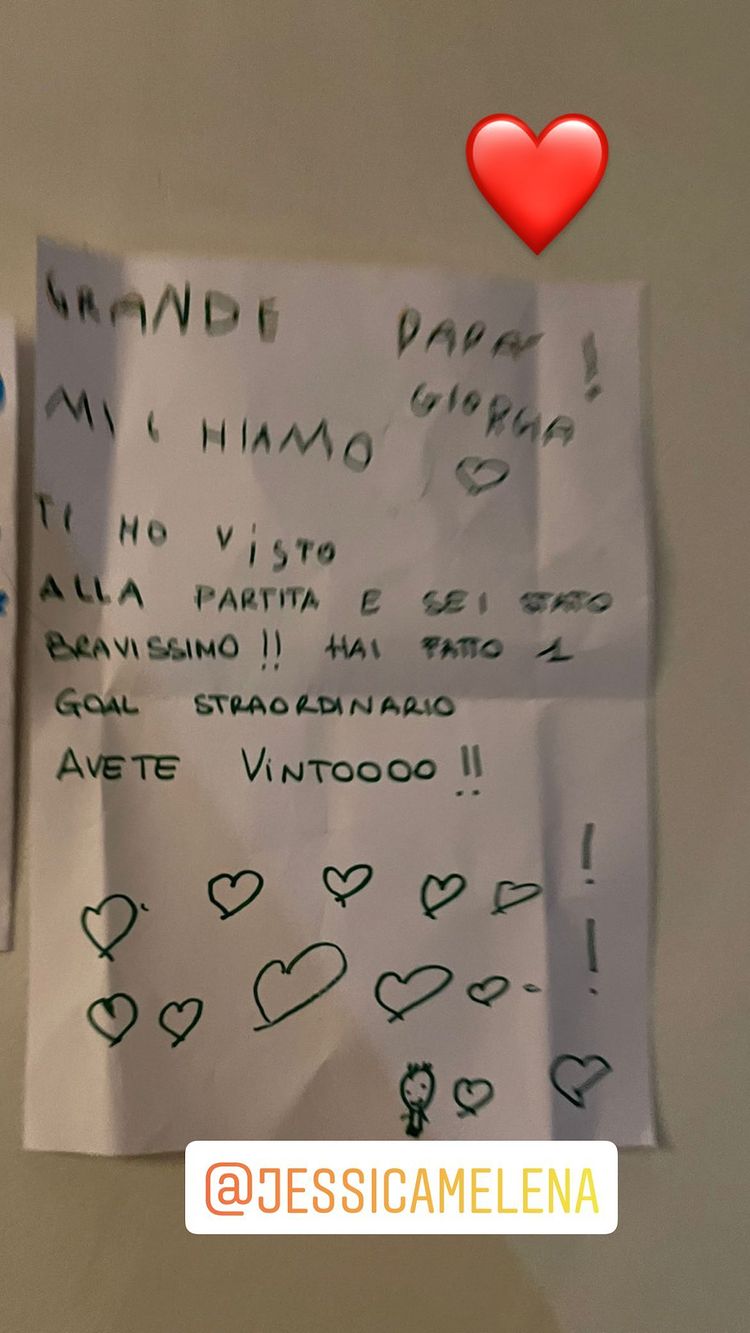 GRANDE PAPA' !
MI CHIAMO GIORGIA
TI HO ViSTO
ALLA PARTITA E SEI STATO
BRAVISSIMO !! HAI FATTO 1
GOAL STRAORDINARIO
AVETE ViNTOOOO !!
!
!
@JESSICAMELENA